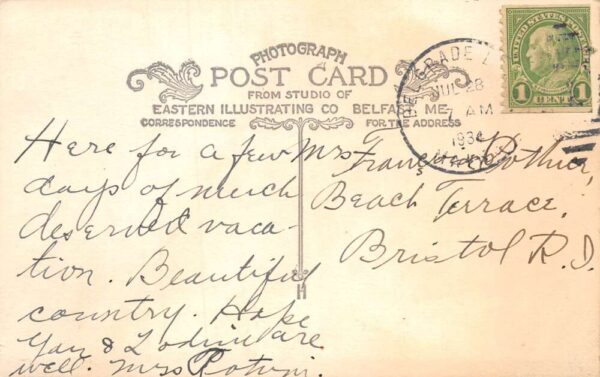 PHOTOGRAPH
POST CARD
FROM STUDIO OF
EASTERN ILLUSTRATING CO BELFAST, ME.
CORRESPONDENCE
FOR THE ADDRESS
BELGRADE L
JUL 28
7 AM
1934
UNITED STATES POSTAGE
1 CENT 1
Here for a few
days of much
deserved vaca-
tion. Beautiful
country. Hope
You & are
well. Mrs
Mrs
Beach Terrace.
Bristol R.I.